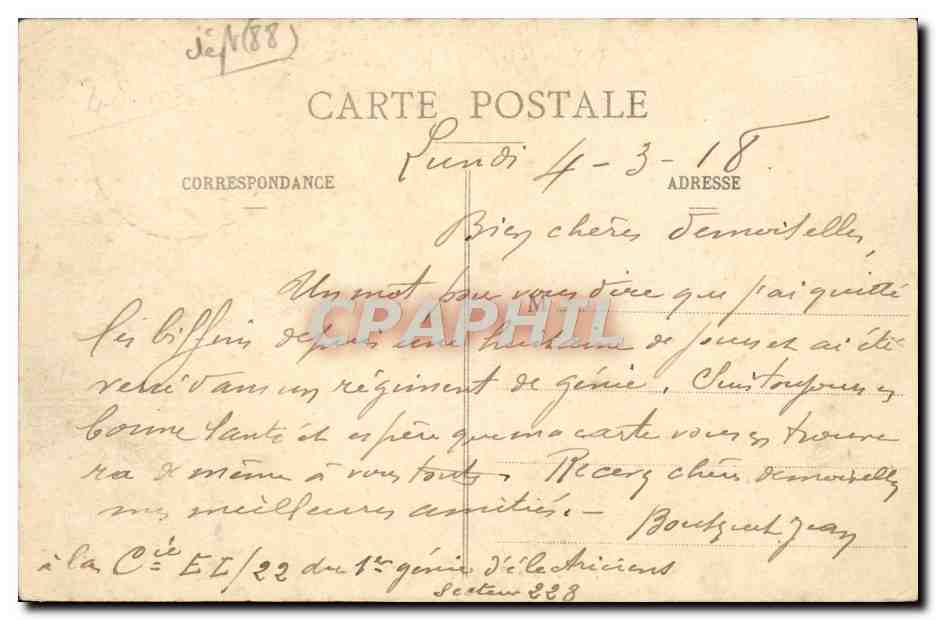 dépt (88)
CARTE POSTALE
Lundi 4-3-18
CORRESPONDANCE
ADRESSE
Bien chères demoiselles,
Un mot pour vous dire que j'ai quitté
les biffins depuis une huitaine de jours et ai été
versé dans un régiment de génie. Suis toujours en
bonne santé et espère que ma carte vous en trouve
ra de même à vous toutes. Recevez chères demoiselles
mes meilleures amitiés. -
Jean
à la Cie EI/22 du 1er génie d'électriciens
Secteur 228
M
CPAPHIL